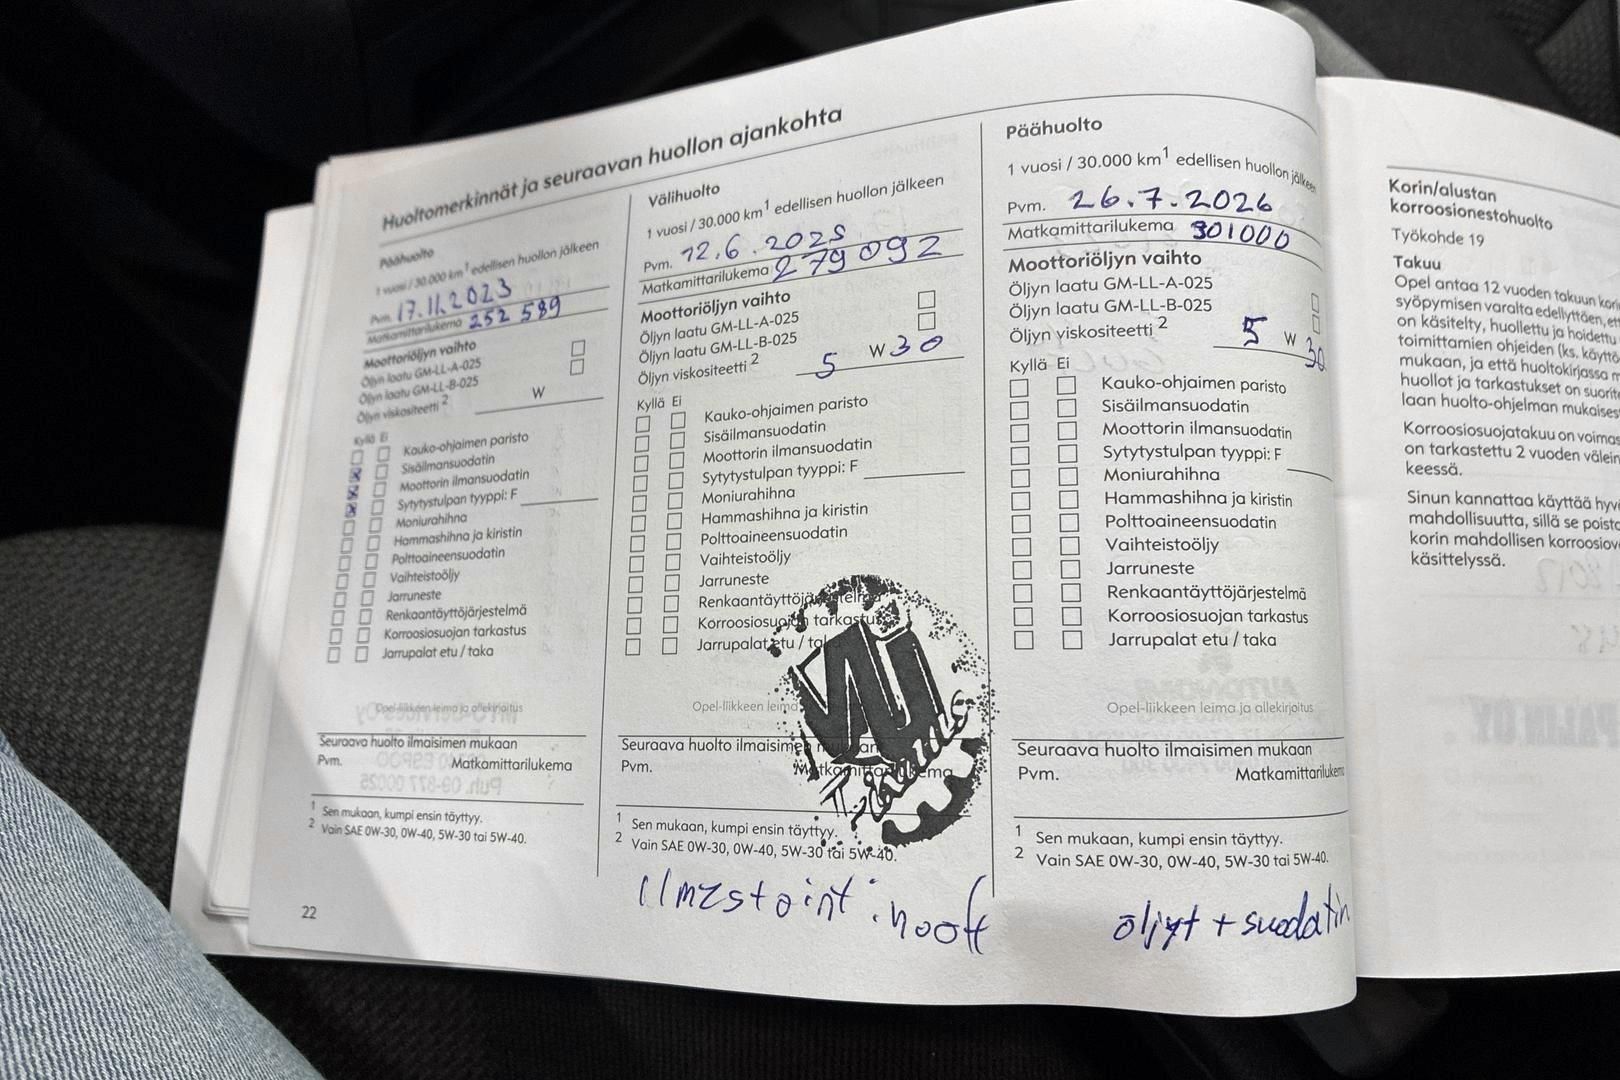 Huoltomerkinnät ja seuraavan huollon ajankohta
Päähuolto
1 vuosi / 30.000 km1 edellisen huollon jälkeen
Pvm. 17.11.2023
Matkamittarilukema 252 589
Moottoriöljyn vaihto
Öljyn laatu GM-LL-A-025
Öljyn laatu GM-LL-B-025
Öljyn viskositeetti 2 W
Kyllä Ei
Kauko-ohjaimen paristo
Sisäilmansuodatin
Moottorin ilmansuodatin
Sytytystulpan tyyppi: F
Moniurahihna
Hammashihna ja kiristin
Polttoaineensuodatin
Vaihteistoöljy
Jarruneste
Renkaantäyttöjärjestelmä
Korroosiosuojan tarkastus
Jarrupalat etu / taka
Opel-liikkeen leima ja allekirjoitus
Seuraava huolto ilmaisimen mukaan
Pvm. Matkamittarilukema
1 Sen mukaan, kumpi ensin täyttyy.
2 Vain SAE 0W-30, 0W-40, 5W-30 tai 5W-40.
22
Välihuolto
1 vuosi / 30.000 km1 edellisen huollon jälkeen
Pvm. 12.6.2025
Matkamittarilukema 279092
Moottoriöljyn vaihto
Öljyn laatu GM-LL-A-025
Öljyn laatu GM-LL-B-025
Öljyn viskositeetti 2 5 W 30
Kyllä Ei
Kauko-ohjaimen paristo
Sisäilmansuodatin
Moottorin ilmansuodatin
Sytytystulpan tyyppi: F
Moniurahihna
Hammashihna ja kiristin
Polttoaineensuodatin
Vaihteistoöljy
Jarruneste
Renkaantäyttöjärjestelmä
Korroosiosuojan tarkastus
Jarrupalat etu / taka
Opel-liikkeen leima
Seuraava huolto ilmaisimen mukaan
Pvm. Matkamittarilukema
1 Sen mukaan, kumpi ensin täyttyy.
2 Vain SAE 0W-30, 0W-40, 5W-30 tai 5W-40.
Päähuolto
1 vuosi / 30.000 km1 edellisen huollon jälkeen
Pvm. 26.7.2026
Matkamittarilukema 301000
Moottoriöljyn vaihto
Öljyn laatu GM-LL-A-025
Öljyn laatu GM-LL-B-025
Öljyn viskositeetti 2 5 W 30
Kyllä Ei
Kauko-ohjaimen paristo
Sisäilmansuodatin
Moottorin ilmansuodatin
Sytytystulpan tyyppi: F
Moniurahihna
Hammashihna ja kiristin
Polttoaineensuodatin
Vaihteistoöljy
Jarruneste
Renkaantäyttöjärjestelmä
Korroosiosuojan tarkastus
Jarrupalat etu / taka
Opel-liikkeen leima ja allekirjoitus
Seuraava huolto ilmaisimen mukaan
Pvm. Matkamittarilukema
1 Sen mukaan, kumpi ensin täyttyy.
2 Vain SAE 0W-30, 0W-40, 5W-30 tai 5W-40.
öljyt + suodatin
Korin/alustan
korroosionestohuolto
Työkohde 19
Takuu
Opel antaa 12 vuoden takuun
syöpymisen varalta edellyttäen,
on käsitelty, huollettu ja hoidettu
toimittamien ohjeiden (ks.
mukaan, ja että huoltokirjassa
huollot ja tarkastukset on
laan huolto-ohjelman
Korroosiosuojatakuu on
on tarkastettu 2 vuoden
keessä.
Sinun kannattaa käyttää
mahdollisuutta, sillä se
korin mahdollisen
käsittelyssä.